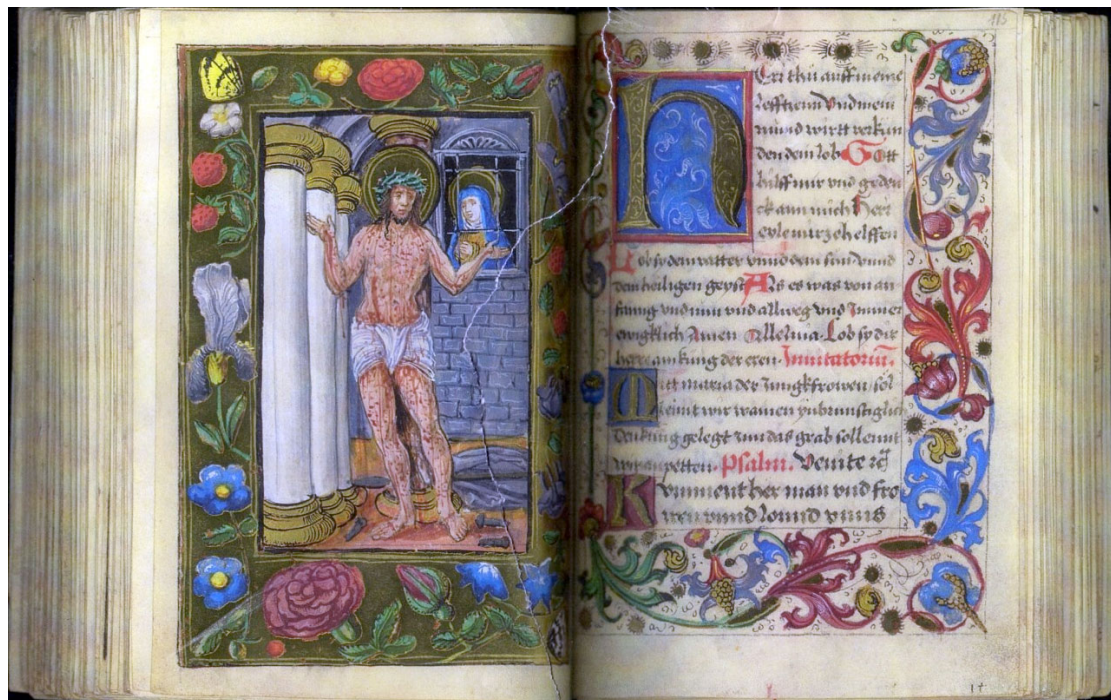 115
Herr thů auff meine
Lefftzenn Vnd mein
mund wirtt verkün
den dem lob Gott
hilff mir vnd geden
ck ann mich herr
eyle mir ze helffen
Lob sy dem vatter vnnd dem sun vnnd
dem heiligen geyst Als es was von an
fanng vnd nun vnd allweg vnd Jmmer
ewigklich Amen Alleluia. Lob sy dir
herre ain kung der eren. Jnuitatoriũ.
Mitt maria der Jungkfrowen / sol
lennt wir wainen ynbrunstigklich
Den kung gelegt inn das grab sollennt
wir anpetten. Psalm. Venite
Kumment her man vnd fro
wen vnnd lonnd vnns